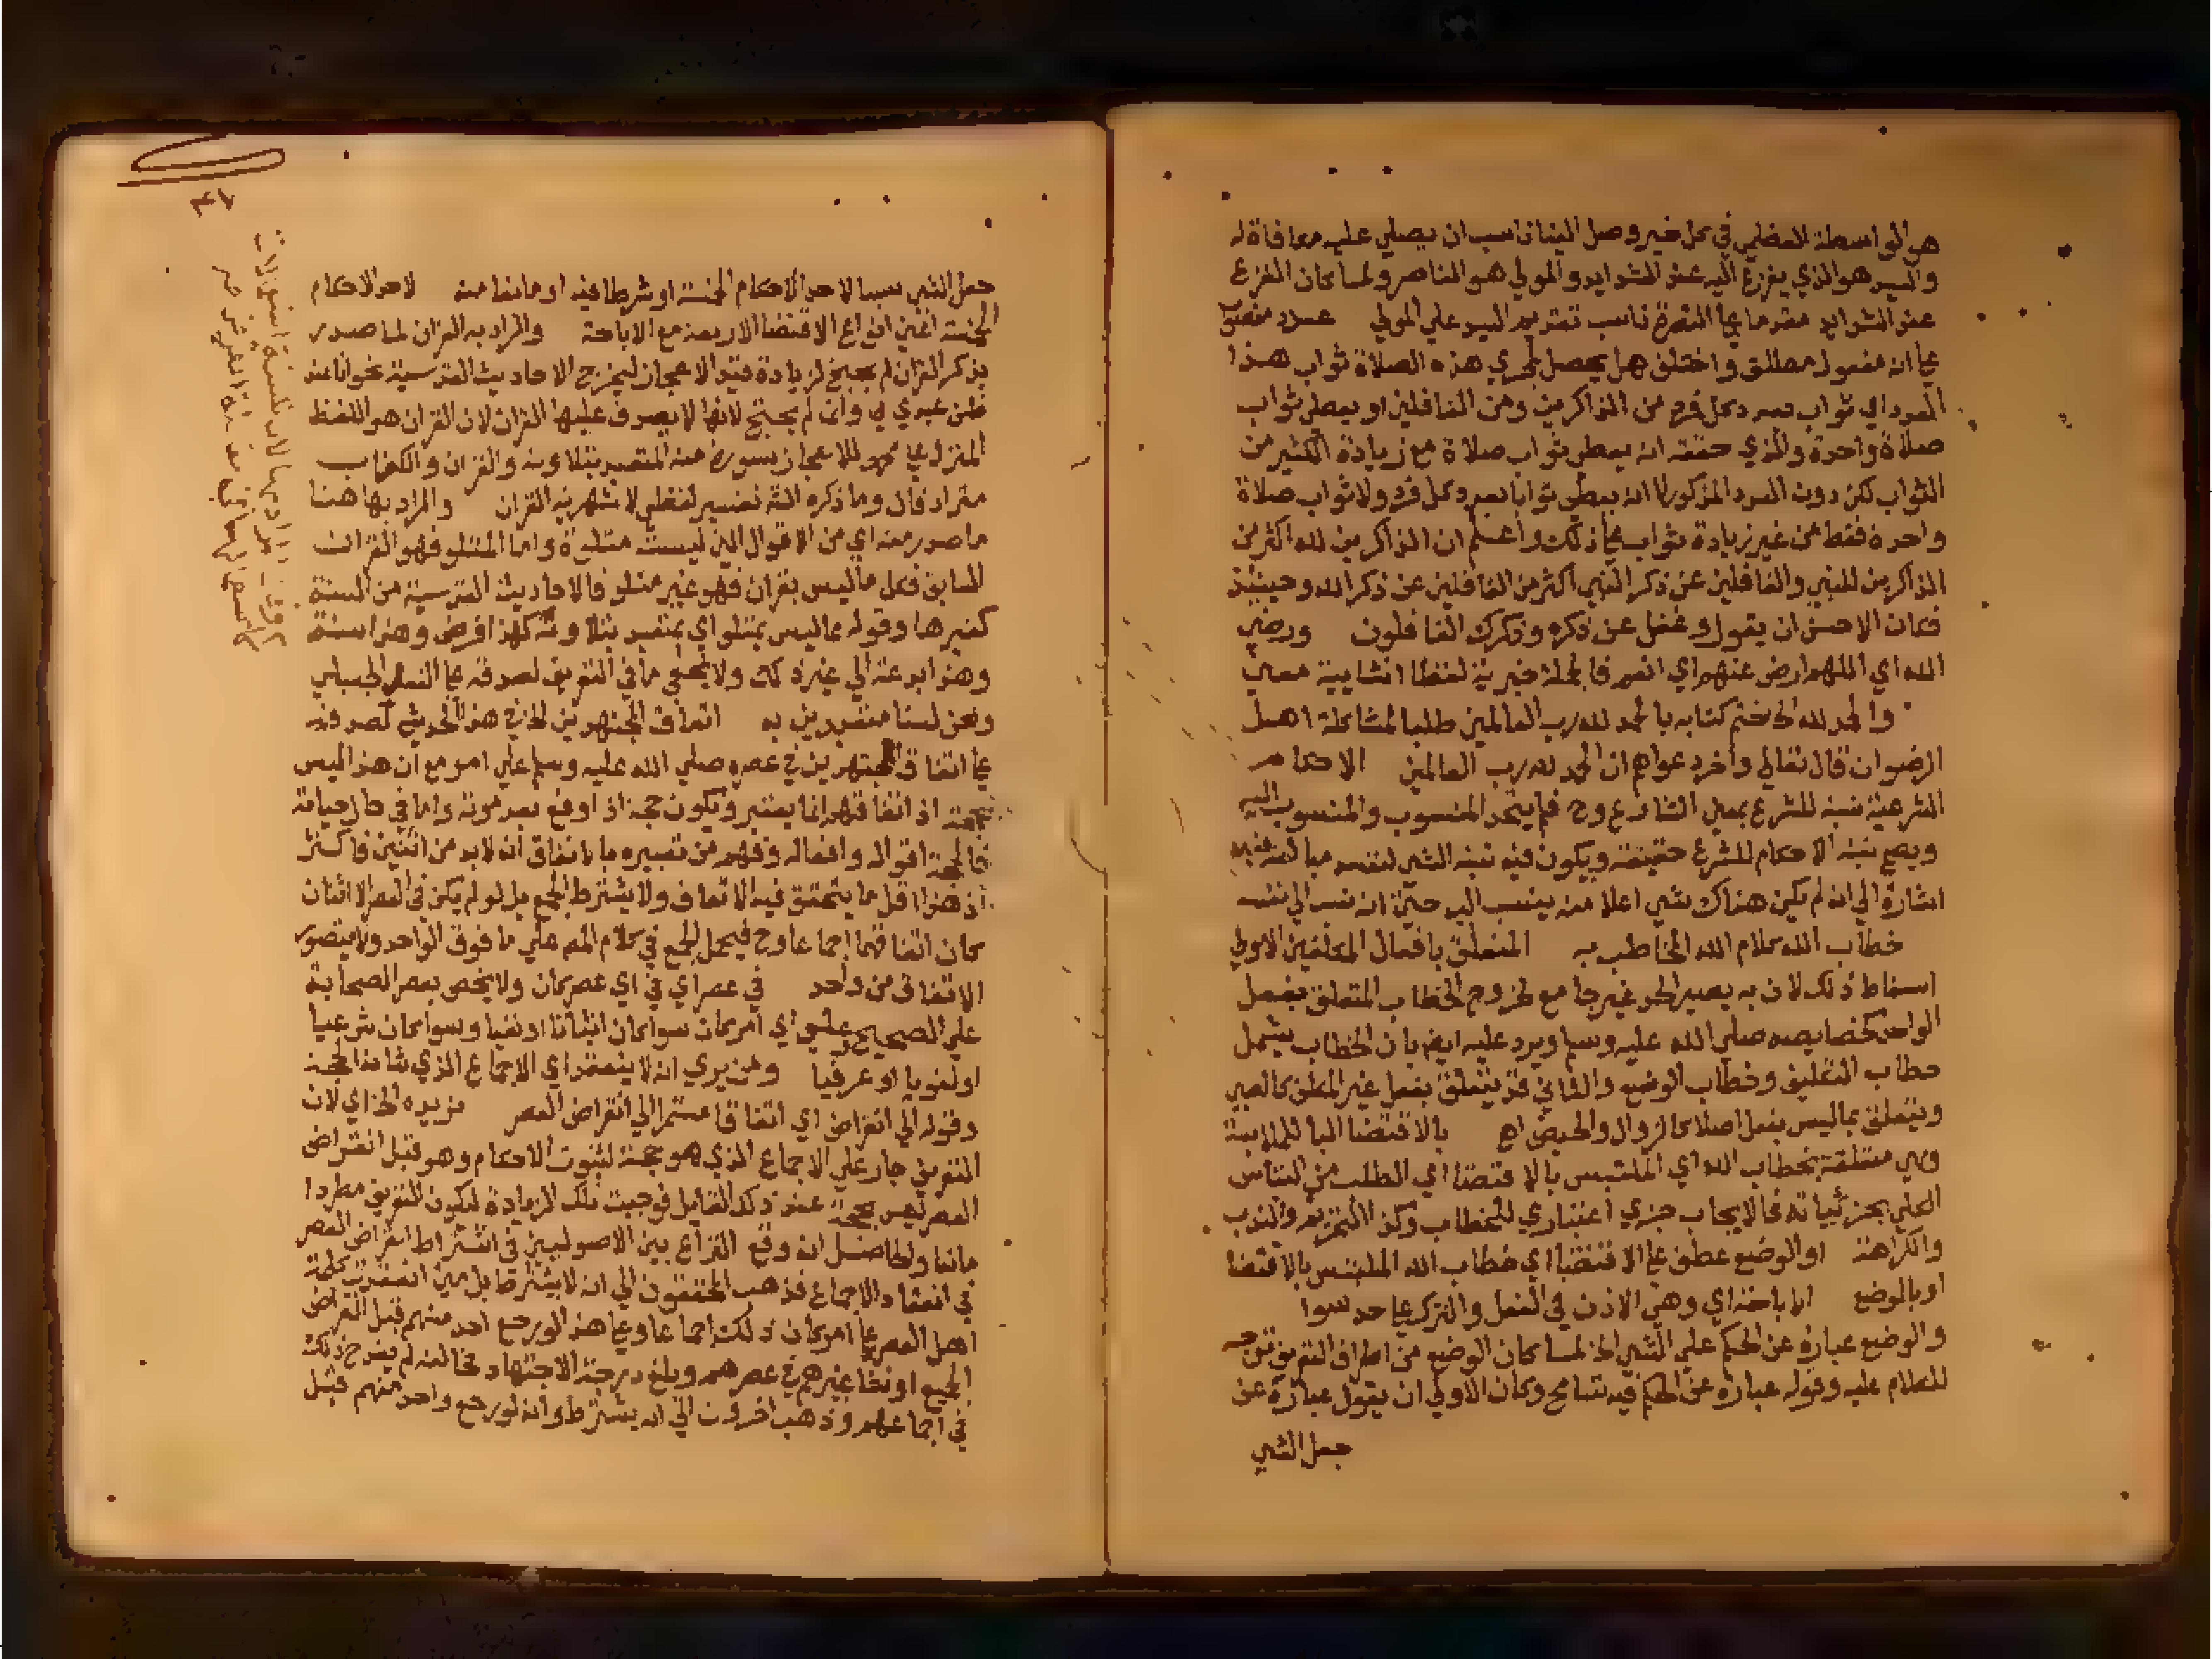 هو الواسطة العظمي في كل خير وصل الينا ناسب ان يصلي عليه مكافاة له
والسيد هو الذي يفزع اليه عند الشدايد والمولي هو الناصر ولما كان الفزع
عند الشدايد مقدما علي النصرة ناسب تقديم السيد علي المولي عدد منصوب
علي انه مفعول مطلق واختلف هل يحصل لمجري هذه الصلاة ثواب هذا
العدد اي ثواب بعدد كل فرد من الذاكرين ومن الغافلين او يعطي ثواب
صلاة واحدة والذي حققه انه يعطي ثواب صلاة مع زيادة الكثير من
الثواب لكن دون العدد المذكور لا انه يعطي ثوابا بعدد كل فرد ولا ثواب صلاة
واحدة فقط من غير زيادة ثواب علي ذلك واعلم ان الذاكرين لله اكثر من
الذاكرين للنبي والغافلين عن ذكر النبي اكثر من الغافلين عن ذكر الله وحينئذ
فكان الاحسن ان يقول وغفل عن ذكره وذكرك الغافلون ورضي
الله اي اللهم ارض عنهم اي انعم فالجملة خبرية لفظا انشايية معني
والحمد لله الخ ختم كتابه بالحمد لله رب العالمين طلبا لمشاكلة اهل
الرضوان قال تعالي واخر دعواهم ان الحمد لله رب العالمين الاحكام
الشرعية نسبة للشرع بمعني الشارع وح فلم يتحد المنسوب والمنسوب اليه
ويصح نسبة الاحكام للشرع حقيقة ويكون فيه نسبة الشي لنفسه مبالغة
اشارة الي انه لم يكن هناك شي اعلا منه ينسب اليه حتي انه نسب الي نفسه
خطاب الله كلام الله المخاطب به المتعلق بافعال المكلفين الاولي
اسقاط ذلك لان به يصير الحد غير جامع لخروج الخطاب المتعلق بفعل
الواحد كخصايصه صلي الله عليه وسلم ويرد عليه ايضا بان الخطاب يشمل
خطاب التكليف وخطاب الوضع والثاني قد يتعلق بفعل غير المكلف كالصبي
ويتعلق بما ليس بفعل اصلا كالزوال والحيض اهـ بالاقتضا البا للملابسة
وهي متعلقة بخطاب الله اي الملتبس بالاقتضا اي الطلب من التباس
الكلي بجزئياته فالايجاب جزي اعتباري للخطاب وكذا التحريم والندب
والكراهة او الوضع عطف علي الاقتضا اي خطاب الله الملتبس بالاقتضا
او بالوضع الاباحة اي وهي الاذن في الفعل والترك علي حد سوا
والوضع عبارة عن الحكم علي الشي الخ لما كان الوضع من اطراف التعريف توجه
للكلام عليه وقوله عبارة عن الحكم فيه تسامح وكان الاولي ان يقول عبارة عن
جعل الشي
جعل الشي سببا لاحد الاحكام الخمسة او شرطا فيه او مانعا منه لاحد الاحكام
الخمسة اعني انواع الاقتضا الاربعة مع الاباحة والمراد به القران لما صدر
بذكر القران لم يحتج لزيادة قيد الاعجاز ليخرج الاحاديث القدسية نحو انا عند
ظن عبدي بي وان لم يحتج لانها لا يصدق عليها القران لان القران هو اللفظ
المنزل علي محمد للاعجاز بسورة منه المتعبد بتلاوته والقران والكتاب
مترادفان وما ذكره الشه تفسير لفظي لاشهرية القران والمراد بها هنا
ما صدر منه اي من الاقوال التي ليست متلوة واما المتلو فهو القران
السابق فكل ما ليس بقران فهو غير متلو فالاحاديث القدسية من السنة
كغيرها وقوله مما ليس بمتلو اي بمتعبد بتلاوته كهذا فرض وهذا سنة
وهذا بدعة الي غير ذلك ولا يخفي ما في التعريف لصدقه علي الفعل الجبلي
ونحن لسنا متعبدين به اتفاق المجتهدين الخ في هذا الحديث لصدقه
علي اتفاق المجتهدين في عصره صلي الله عليه وسلم علي امر مع ان هذا ليس
بحجة اذ اتفاقهم انما يعتبر ويكون حجة اذا وقع بعد موته واما في حال حياته
فالحجة اقواله وافعاله وفهم من تعبيره بالاتفاق انه لابد من اثنين فاكثر
اذ هذا اقل ما يتحقق فيه الاتفاق ولا يشترط الجمع بل لو لم يكن في العصر الا اثنان
كان اتفاقهما اجماعا وح فيحمل الجمع في كلام الشه علي ما فوق الواحد ولا يتصور
الاتفاق من واحد في عصر اي في اي عصر كان ولا يختص بعصر الصحابة
علي الصحيح علي اي امر كان سوا كان اثباتا او نفيا وسوا كان شرعيا
او لغويا او عرفيا ومن يري انه لا ينعقد اي الاجماع الذي شانه الحجة
وقوله الي انقراض اي اتفاقا مستمرا الي انقراض العصر يزيده الخ اي لان
التعريف جار علي الاجماع الذي هو حجة لثبوت الاحكام وهو قبل انقراض
العصر ليس بحجة عند ذلك القايل فوجبت تلك الزيادة ليكون التعريف مطردا
مانعا والحاصل انه وقع النزاع بين الاصوليين في اشتراط انقراض العصر
في انعقاد الاجماع فذهب المحققون الي انه لا يشترط بل متي اتفقت كلمة
اهل العصر علي امر كان ذلك اجماعا وعلي هذا لو رجع احد منهم قبل انقراض
الجميع او نشا غيرهم في عصرهم وبلغ درجة الاجتهاد فخالفه لم يقدح ذلك
في اجماعهم وذهب اخرون الي انه يشترط وانه لو رجع واحد منهم قبل